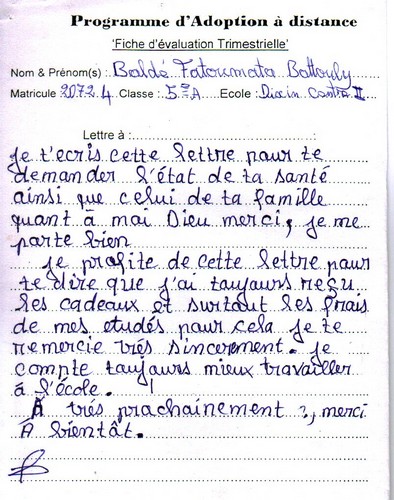 Programme d'Adoption à distance
'Fiche d'évaluation Trimestrielle'
Nom & Prénom(s) : Baldé Fatoumata Battouly
Matricule 2072.4 Classe : 5è A Ecole : Dixin Centre II
Lettre à :
Je t'ecris cette lettre pour te
demander l'état de ta santé
ainsi que celui de ta famille
quant à moi Dieu merci, je me
porte bien
Je profite de cette lettre pour
te dire que j'ai toujours reçu
les cadeaux et surtout les frais
de mes etudés pour cela je te
remercie trés sincerement. je
compte toujours mieux travailler
à l'école. !
À trés prochainement ?, merci
À bientôt.